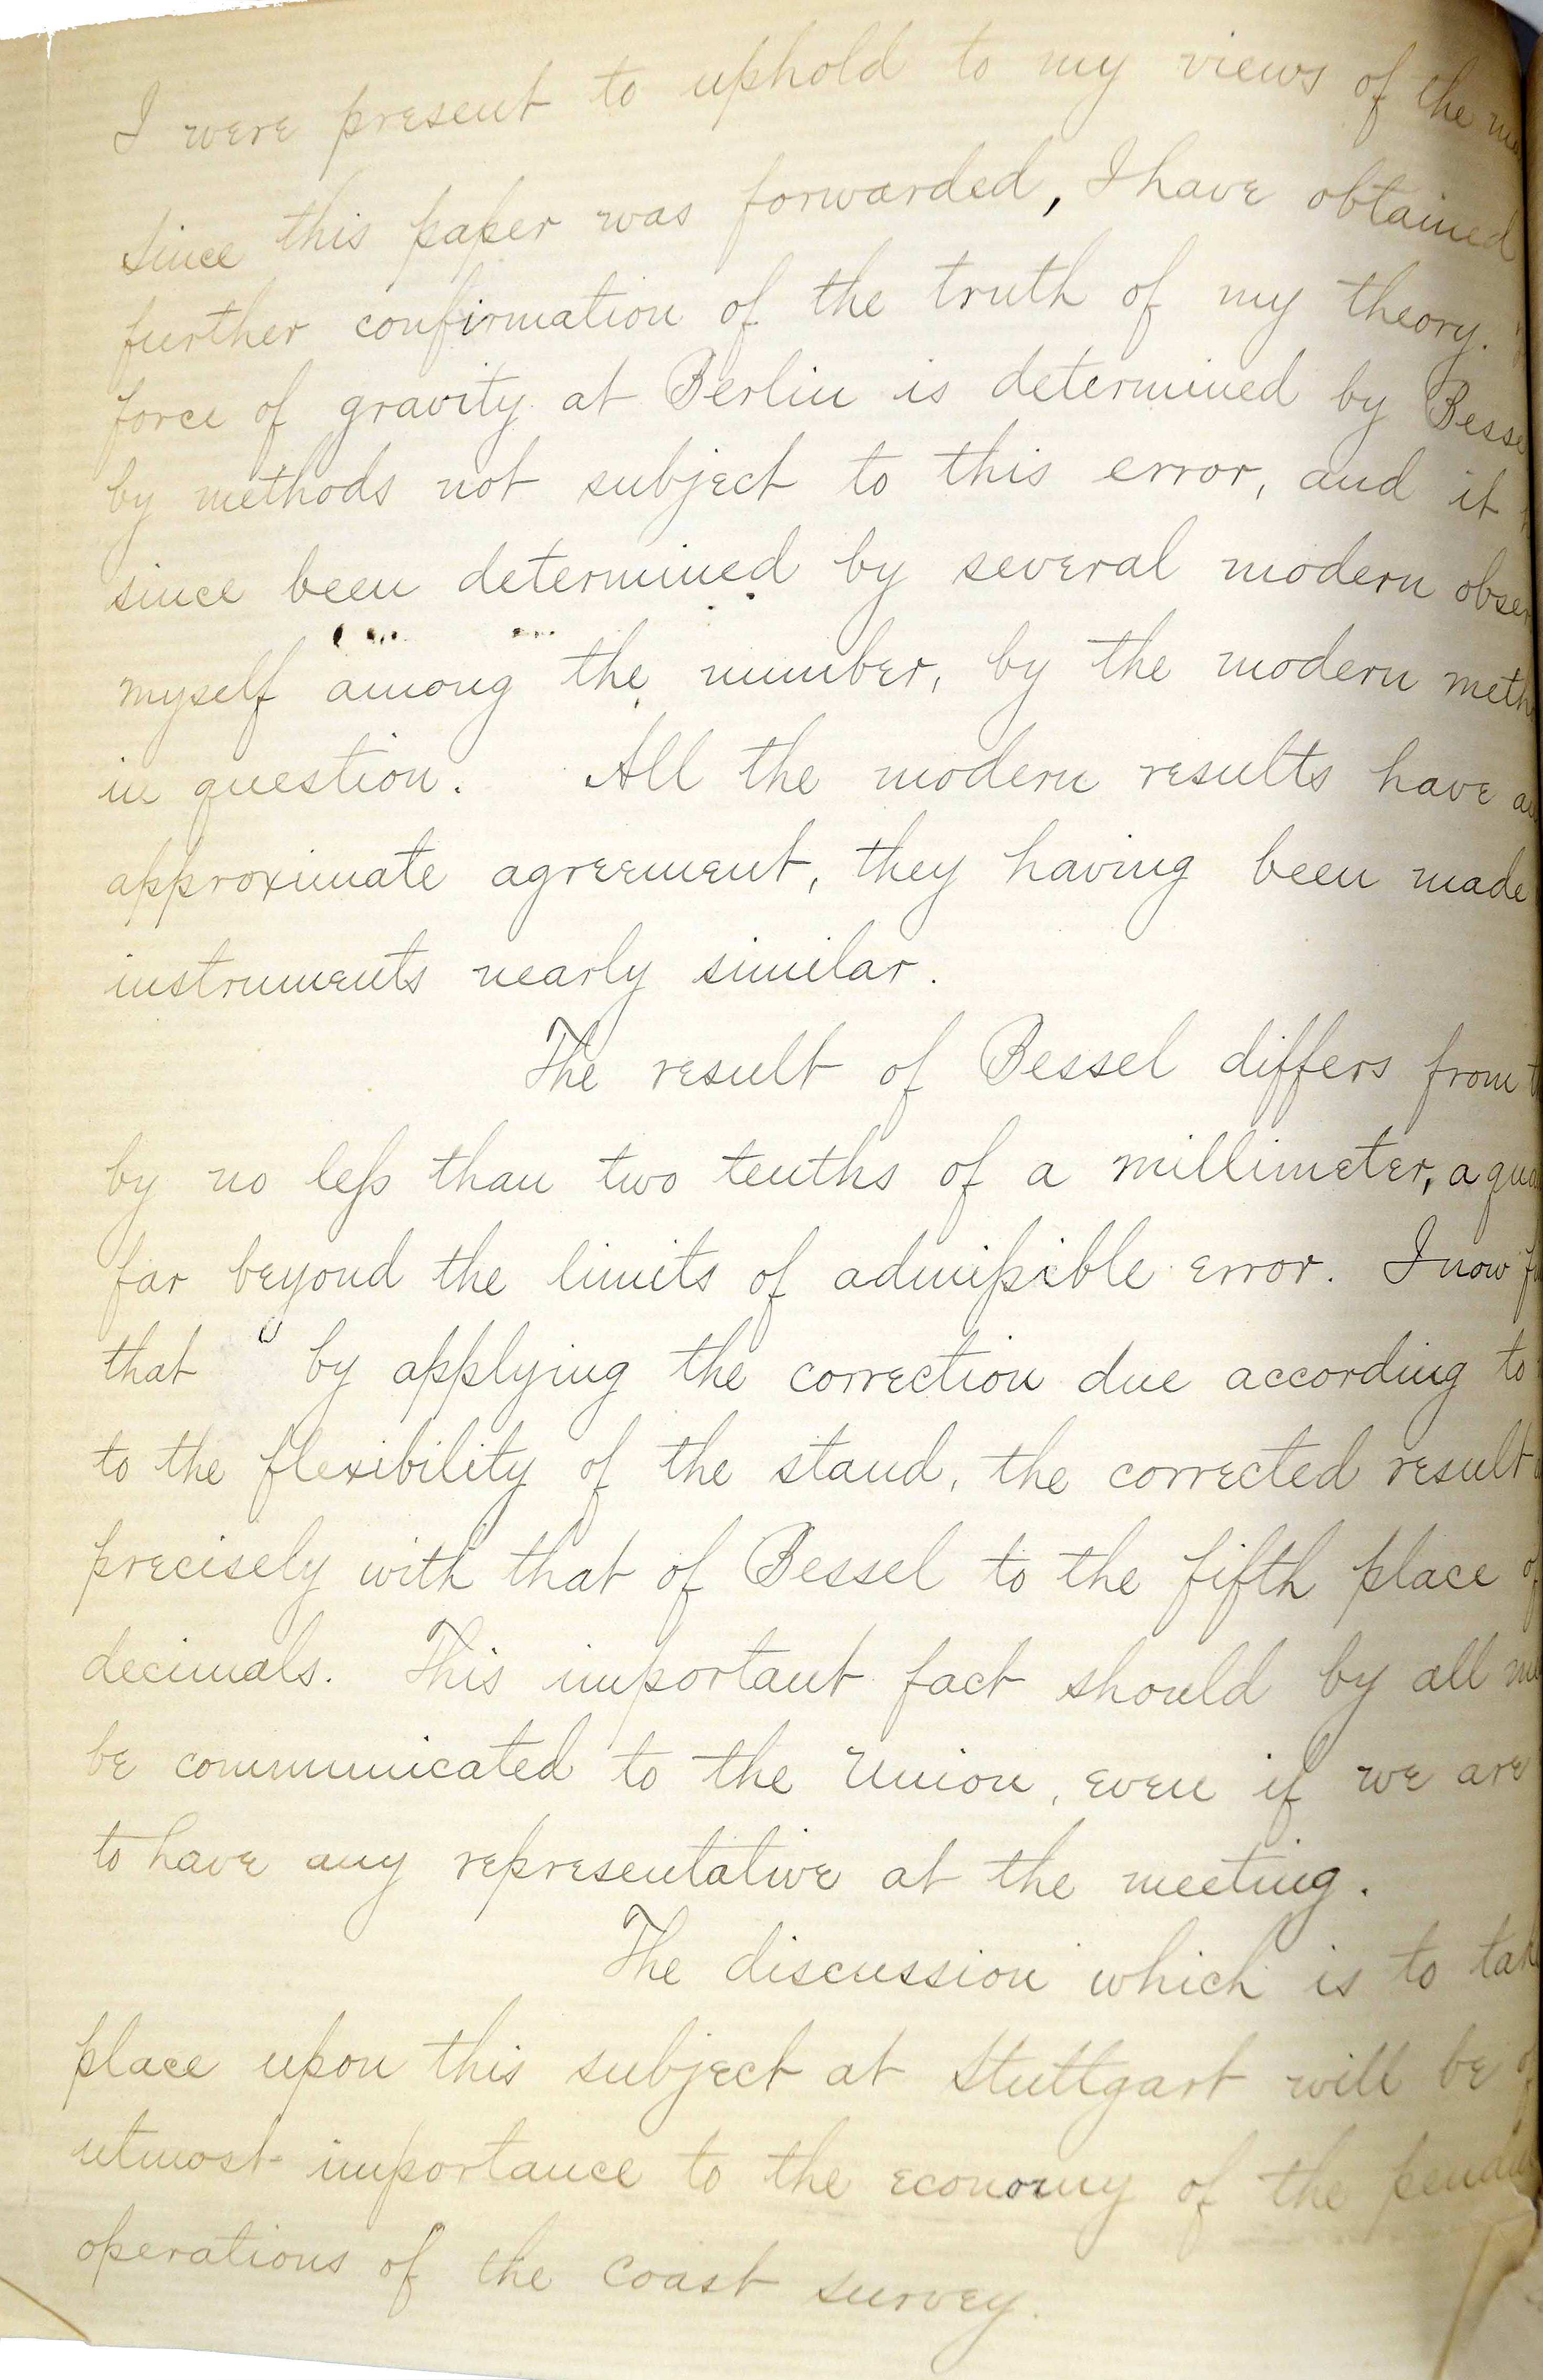 I were present to uphold to my views of the
since this paper was forwarded, I have obtained
further confirmation of the truth of my theory.
force of gravity at Berlin is determined by Besse
by methods not subject to this error, and it
since been determined by several modern obser
myself among the number, by the modern meth
in question. All the modern results have a
approximate agreement, they having been made
instruments nearly similar.
The result of Bessel differs from
by no less than two tenths of a millimeter, a qua
far beyond the limits of admissible error. I now
that " by applying the correction due according to
to the flexibility of the stand, the corrected result
precisely with that of Bessel to the fifth place of
decimals. This important fact should by all
be communicated to the Union, even if we are
to have any representative at the meeting.
The discussion which is to tak
place upon this subject at Stuttgart will be of
utmost importance to the economy of the pendu
operations of the coast survey.